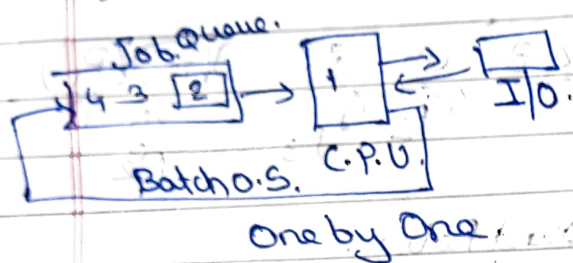 Job Queue.
4 3 2 1
I/O.
C.P.U.
Batch O.S.
One by One.